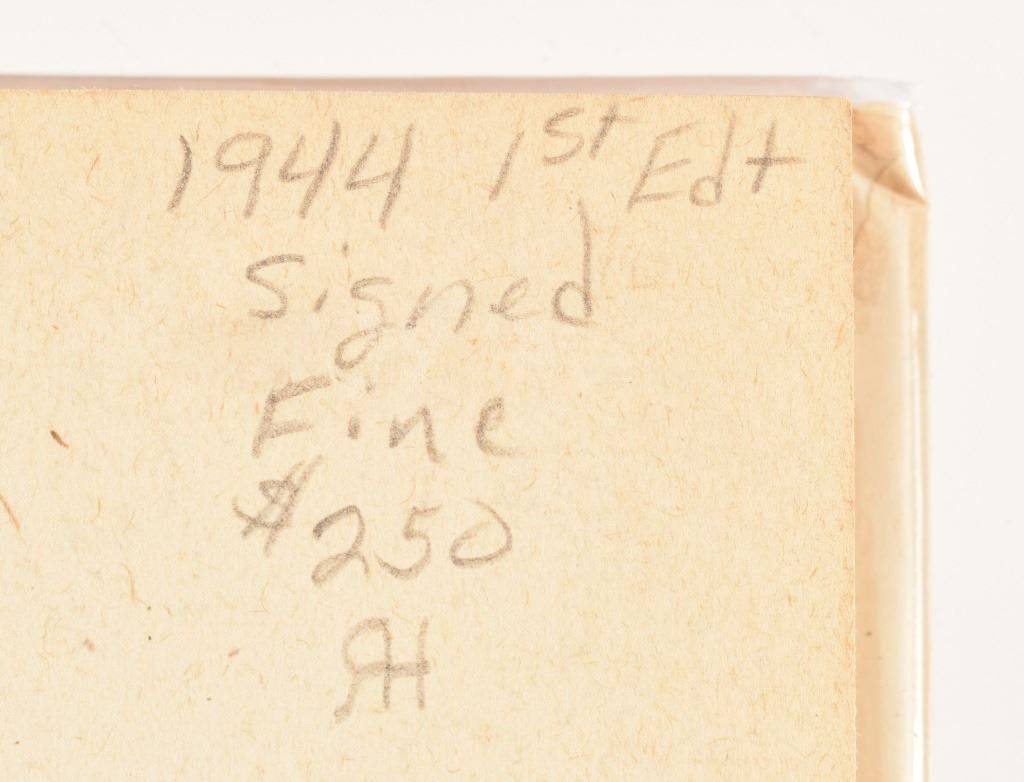 1944 1st Edt
Signed
Fine
$250